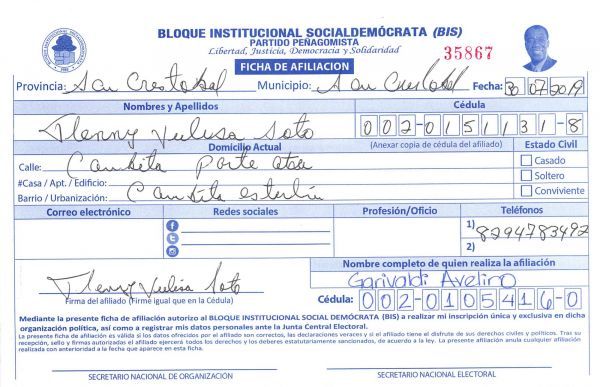 BLOQUE INSTITUCIONAL SOCIALDEMÓCRATA (BIS)
PARTIDO PEÑAGOMISTA
Libertad, Justicia, Democracia y Solidaridad
35867
FICHA DE AFILIACION
Provincia: San Crestobal Municipio: San Cristobal Fecha: 30 07 2019
Nombres y Apellidos Cédula
Flenny Yulisa Soto 002-0151131-8
Domicilio Actual (Anexar copia de cédula del afiliado) Estado Civil
Calle: Cambita parte atras Casado
#Casa / Apt. / Edificio: Soltero
Barrio / Urbanización: Cambita Conviviente
Correo electrónico Redes sociales Profesión/Oficio Teléfonos
1) 8294783492
2)
Nombre completo de quien realiza la afiliación
Flenny Yulisa Soto Garivaldi Avelino
Firma del afiliado (Firme igual que en la Cédula) Cédula: 002-0105416-0
Mediante la presente ficha de afiliación autorizo al BLOQUE INSTITUCIONAL SOCIAL DEMÓCRATA (BIS) a realizar mi inscripción única y exclusiva en dicha
organización política, así como a registrar mis datos personales ante la Junta Central Electoral.
La presente ficha de afiliación es válida si los datos ofrecidos por el afiliado son correctos, las declaraciones veraces y si el afiliado tiene el disfrute de sus derechos civiles y políticos. Tras su
recepción, sello y firmas autorizadas el afiliado ejercerá todos los derechos y los deberes estatutariamente sancionados, de acuerdo a la ley. La presente afiliación anula cualquier afiliación
realizada con anterioridad a la fecha que aparece en esta ficha.
SECRETARIO NACIONAL DE ORGANIZACIÓN SECRETARIO NACIONAL ELECTORAL